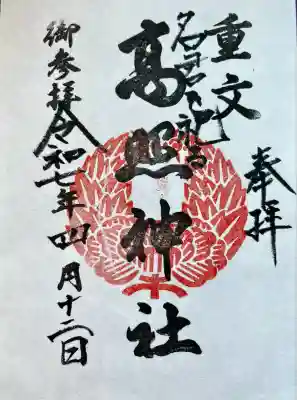 奉拝
重文
高照神社
御参拝令和七年四月十二日